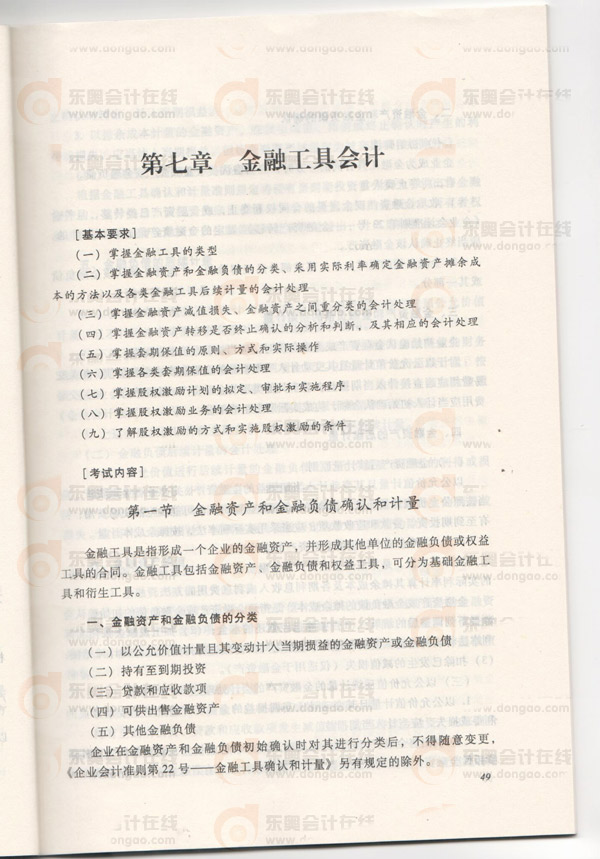 第七章 金融工具会计
[基本要求]
（一）掌握金融工具的类型
（二）掌握金融资产和金融负债的分类、采用实际利率确定金融资产摊余成
本的方法以及各类金融工具后续计量的会计处理
（三）掌握金融资产减值损失、金融资产之间重分类的会计处理
（四）掌握金融资产转移是否终止确认的分析和判断，及其相应的会计处理
（五）掌握套期保值的原则、方式和实际操作
（六）掌握各类套期保值的会计处理
（七）掌握股权激励计划的拟定、审批和实施程序
（八）掌握股权激励业务的会计处理
（九）了解股权激励的方式和实施股权激励的条件
[考试内容]
第一节 金融资产和金融负债确认和计量
金融工具是指形成一个企业的金融资产，并形成其他单位的金融负债或权益
工具的合同。金融工具包括金融资产、金融负债和权益工具，可分为基础金融工
具和衍生工具。
一、金融资产和金融负债的分类
（一）以公允价值计量且其变动计入当期损益的金融资产或金融负债
（二）持有至到期投资
（三）贷款和应收款项
（四）可供出售金融资产
（五）其他金融负债
企业在金融资产和金融负债初始确认时对其进行分类后，不得随意变更，
《企业会计准则第22号——金融工具确认和计量》另有规定的除外。
49
东奥会计在线
www.dongao.com